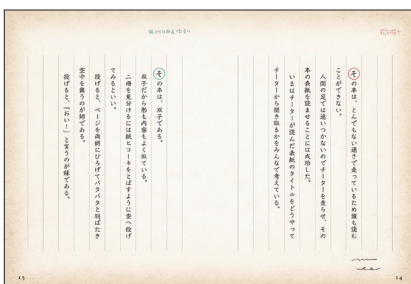 その本は、とんでもない速さで走っているため誰も読む
ことができない。
人間の足では追いつかないのでチーターを走らせ、その
本の表紙を読ませることには成功した。
いまはチーターが読んだ表紙のタイトルをどうやって
チーターから聞き取るかをみんなで考えている。
14
その本は、双子である。
双子だから形も内容もよく似ている。
二冊を見分けるには紙ヒコーキをとばすように空へ投げ
てみるといい。
投げると、ページを両側にひろげてバタバタと羽ばたき
空中を舞うのが姉である。
投げると、「おい！」と言うのが妹である。
15